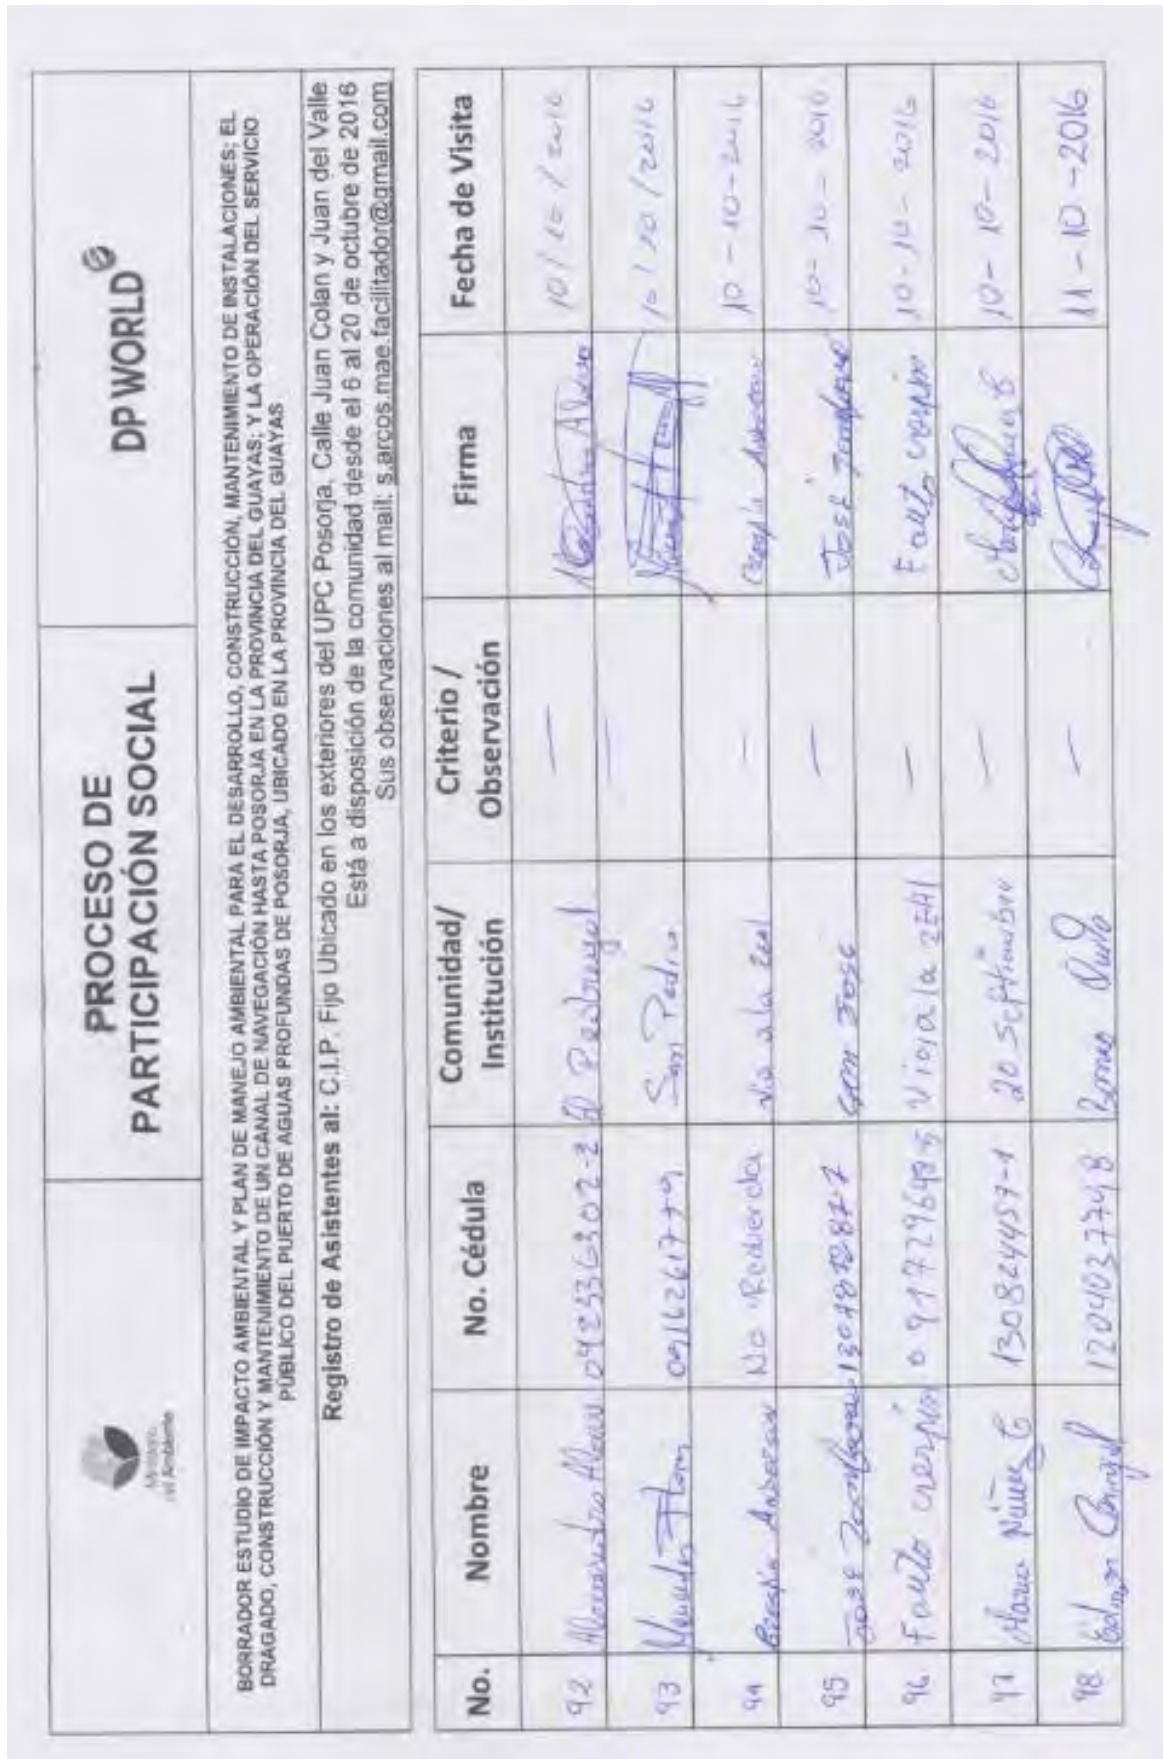 Ministerio
del Ambiente
PROCESO DE
PARTICIPACIÓN SOCIAL
DP WORLD
BORRADOR ESTUDIO DE IMPACTO AMBIENTAL Y PLAN DE MANEJO AMBIENTAL PARA EL DESARROLLO, CONSTRUCCIÓN, MANTENIMIENTO DE INSTALACIONES; EL
DRAGADO, CONSTRUCCIÓN Y MANTENIMIENTO DE UN CANAL DE NAVEGACIÓN HASTA POSORJA EN LA PROVINCIA DEL GUAYAS; Y LA OPERACIÓN DEL SERVICIO
PÚBLICO DEL PUERTO DE AGUAS PROFUNDAS DE POSORJA, UBICADO EN LA PROVINCIA DEL GUAYAS
Registro de Asistentes al: C.I.P. Fijo Ubicado en los exteriores del UPC Posorja, Calle Juan Colan y Juan del Valle
Está a disposición de la comunidad desde el 6 al 20 de octubre de 2016
Sus observaciones al mail: s.arcos.mae.facilitador@gmail.com
No. Nombre No. Cédula Comunidad/ Institución Criterio / Observación Firma Fecha de Visita
92 El Pedregal — 10/10/2016
93 0916261779 San Pedro — 10/10/2016
94 No Recuerda Via a la Zeal — 10-10-2016
95 José San José — José 10-10-2016
96 Fausto Crespin Via a la ZEAL — Fausto Crespin 10-10-2016
97 Mario Núñez 130824459-1 20 Septiembre — 10-10-2016
98 1204037748 — 11-10-2016